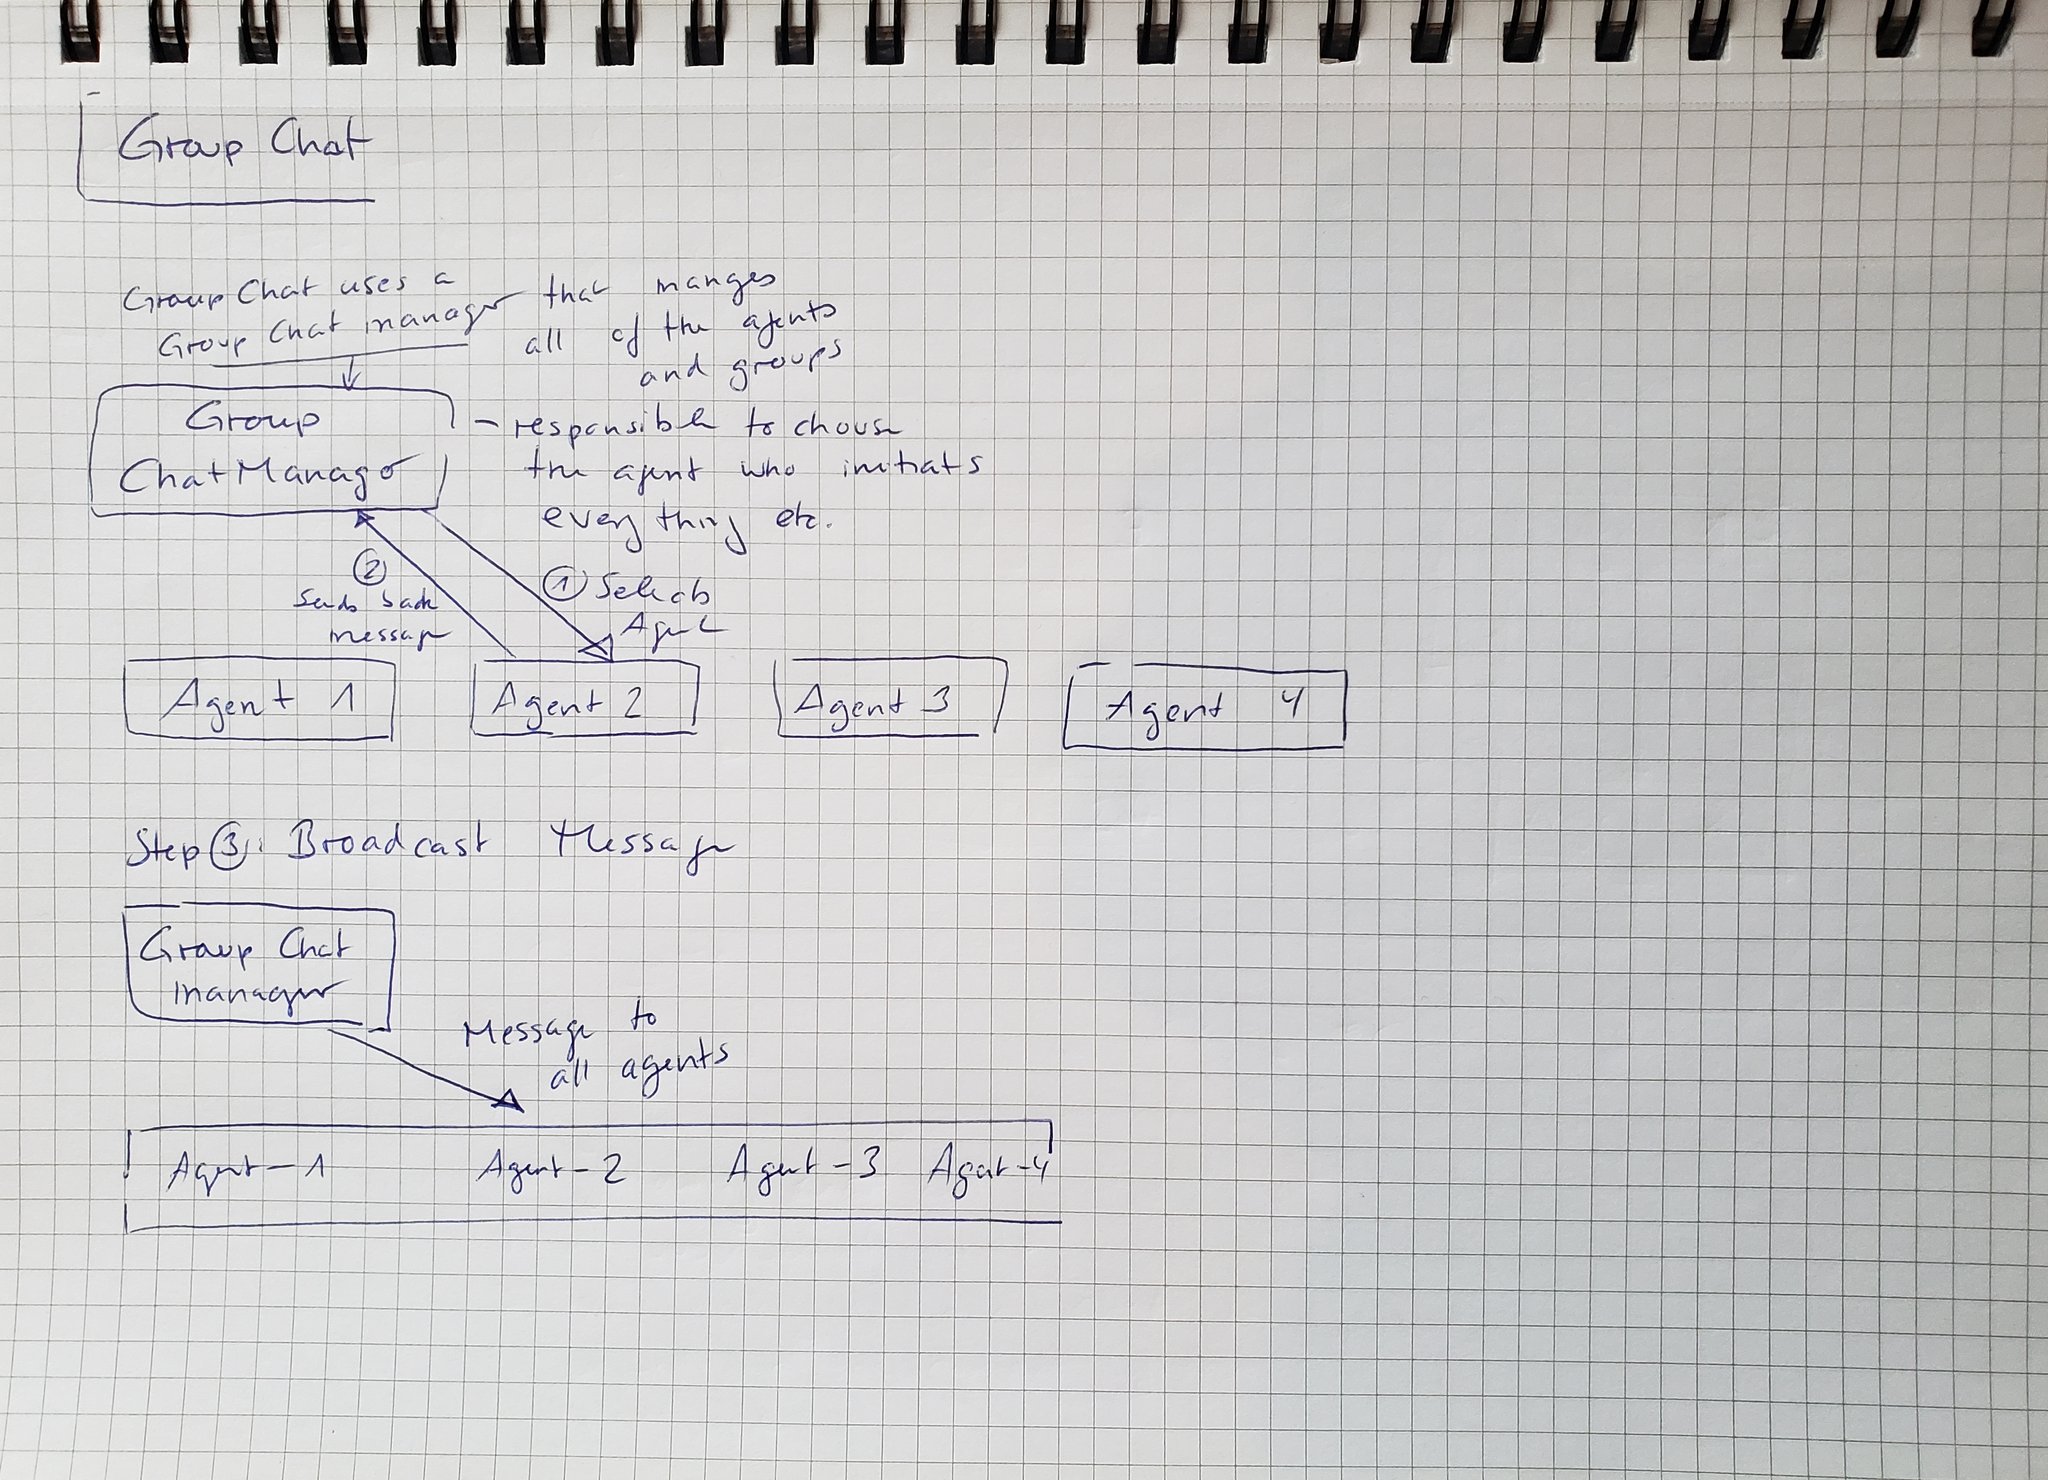 Group Chat
Group Chat uses a
Group Chat manager that manges
all of the agents
and groups
Group
ChatManager
- responsible to choose
the agent who initiats
everything etc.
② Sends back
message
① Selects
Agent
Agent 1 Agent 2 Agent 3 Agent 4
Step ③: Broadcast Message
Group Chat
manager
Message to
all agents
Agent-1 Agent-2 Agent-3 Agent-4